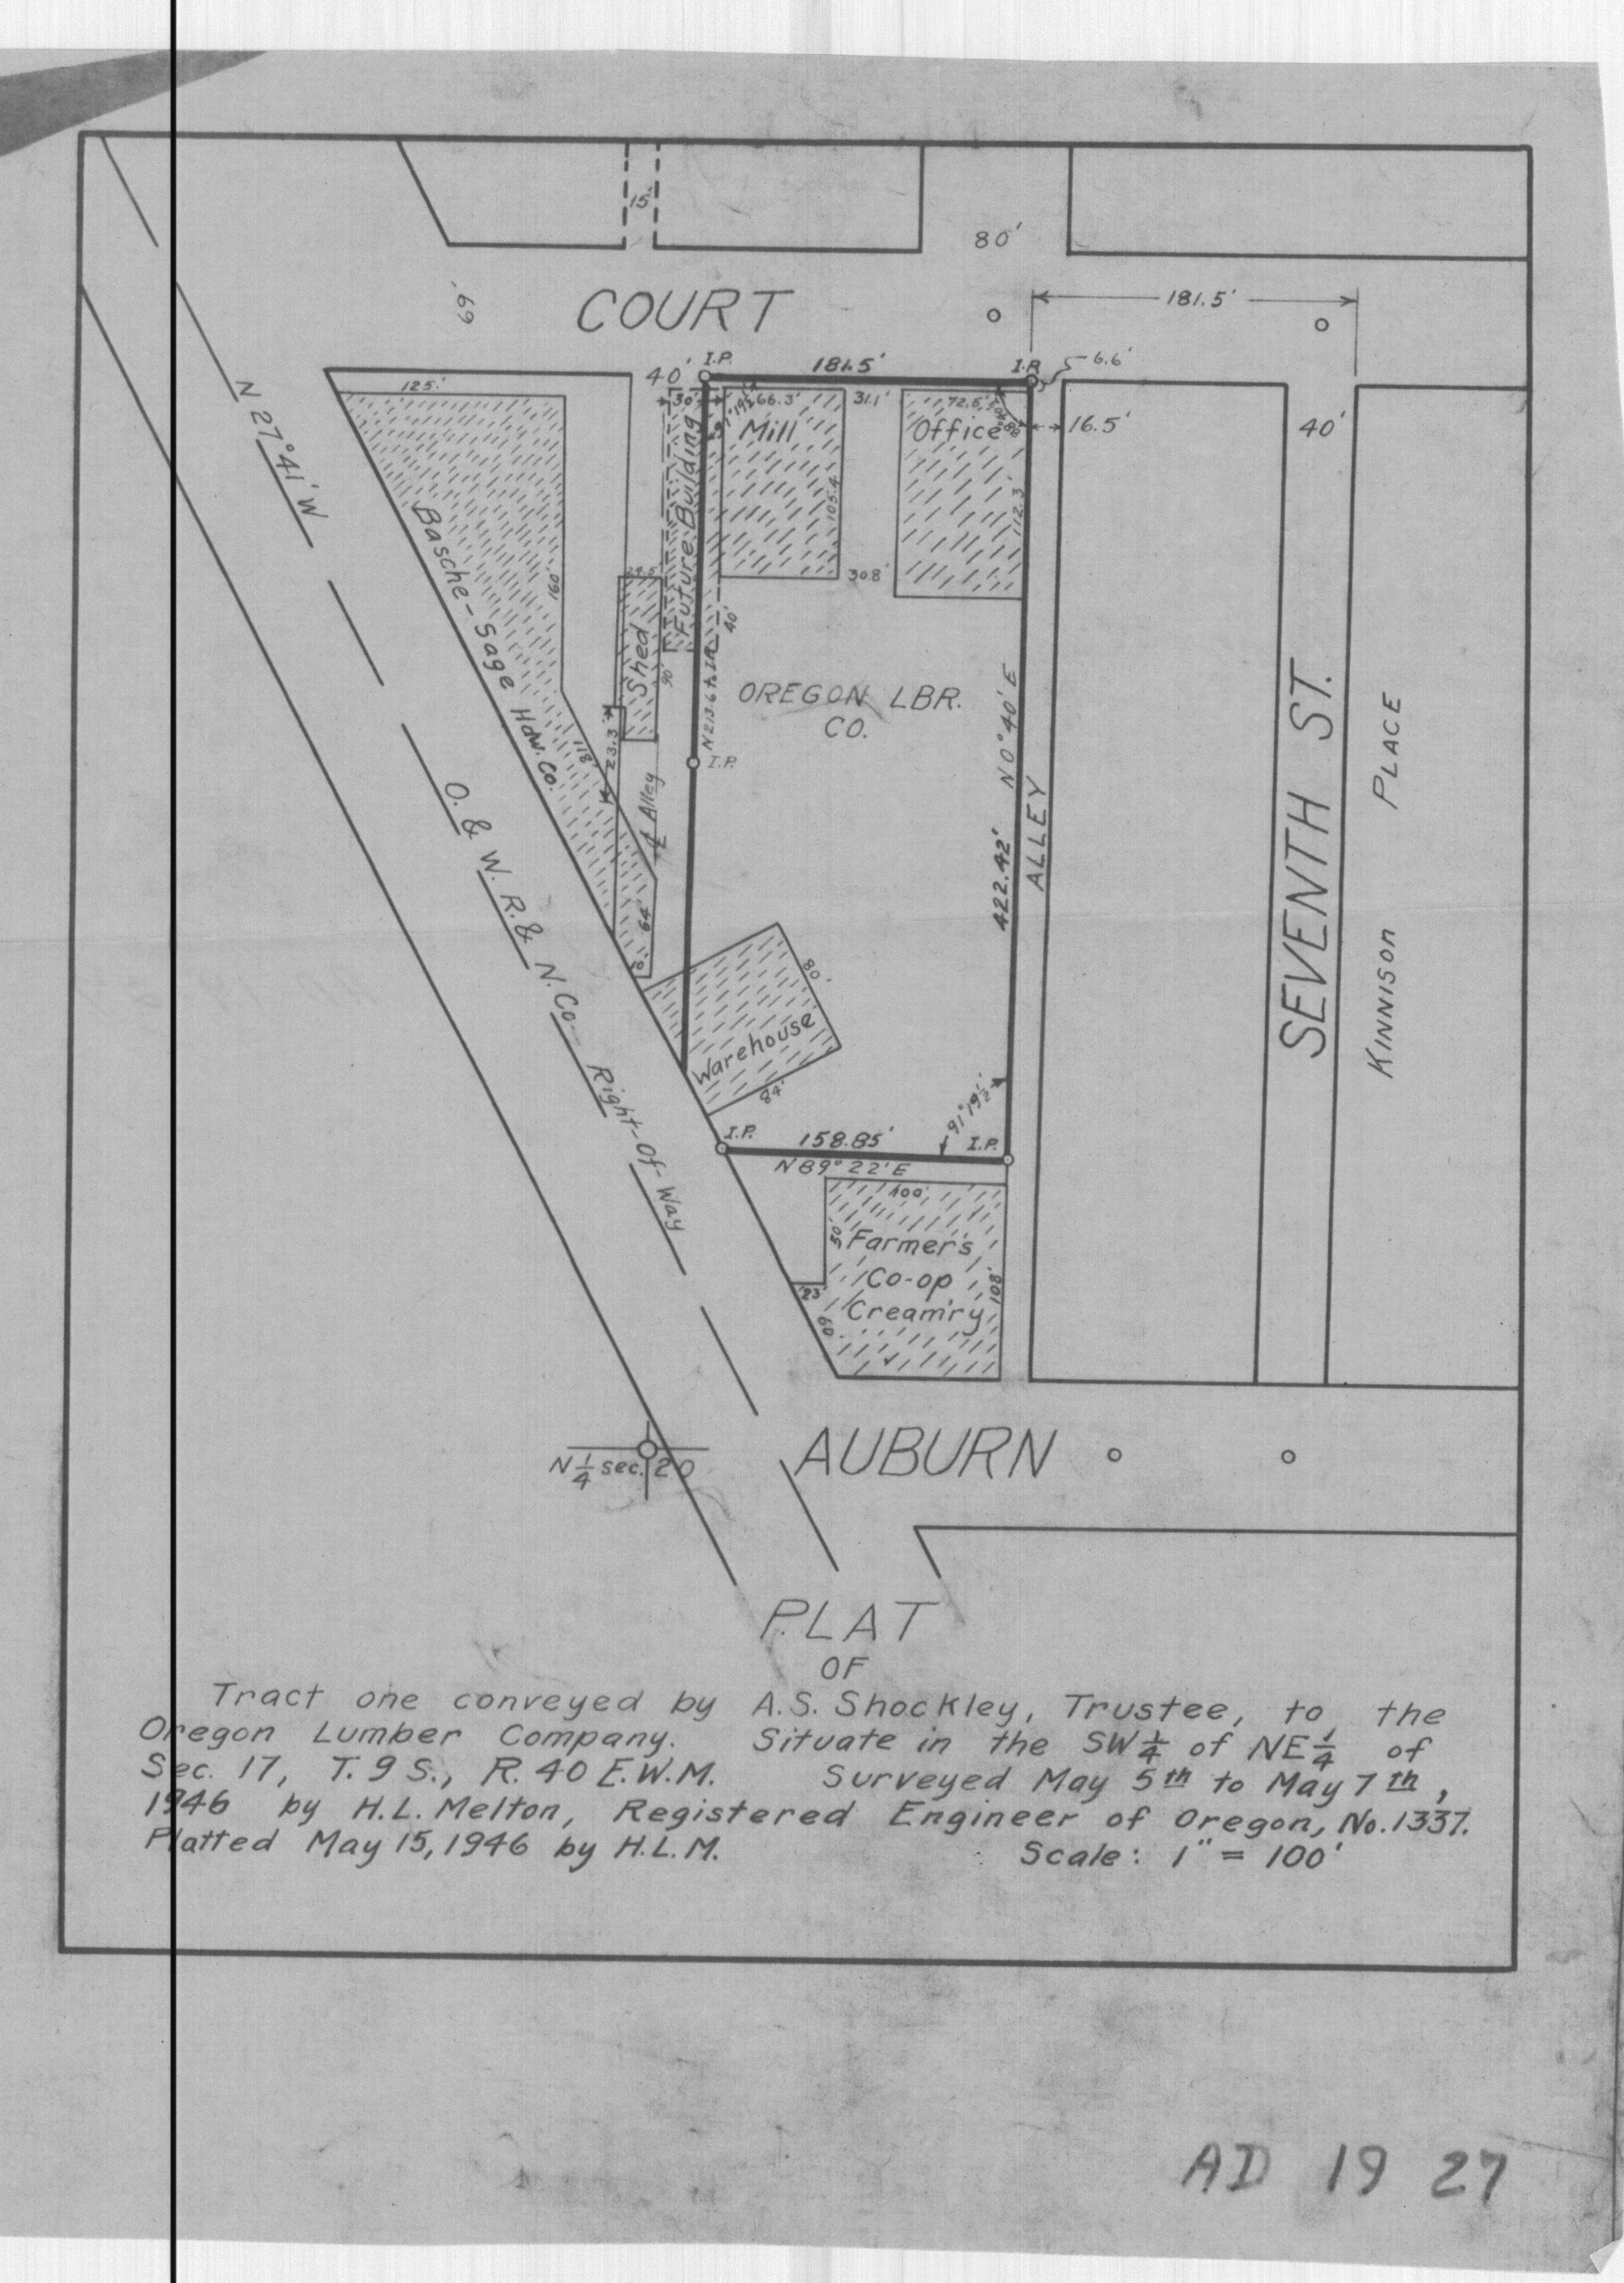 15'
80'
69'
COURT
181.5'
I.P.
181.5'
I.P.
6.6'
40'
125'
30'
66.3'
31.1'
72.6'
16.5'
40'
Mill
Office
N 27°41' W
Future Building
105.4'
112.3'
Basche-Sage Hdw. Co.
160'
24.5'
30.8'
Shed
40'
90'
OREGON LBR.
CO.
N 0°40' E
422.42'
ALLEY
SEVENTH ST.
KINNISON PLACE
I.P.
118'
23.3'
Alley
64'
O. & W. R. & N. Co. Right-Of-Way
80'
Warehouse
84'
91°19½'
I.P.
158.85'
I.P.
N 89° 22' E
100'
50'
Farmer's
Co-op
Cream'ry
108'
23'
60'
N ¼ sec. 20
AUBURN
PLAT
OF
Tract one conveyed by A.S. Shockley, Trustee, to the
Oregon Lumber Company. Situate in the SW ¼ of NE ¼ of
Sec. 17, T. 9 S., R. 40 E.W.M. Surveyed May 5th to May 7th,
1946 by H.L. Melton, Registered Engineer of Oregon, No. 1337.
Platted May 15, 1946 by H.L.M. Scale: 1" = 100'
AD 19 27